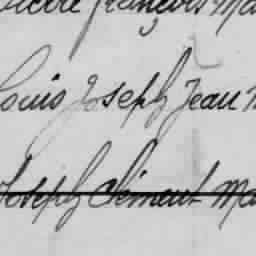 Pierre françois Ma
Louis Joseph Jean
Joseph Clément Ma